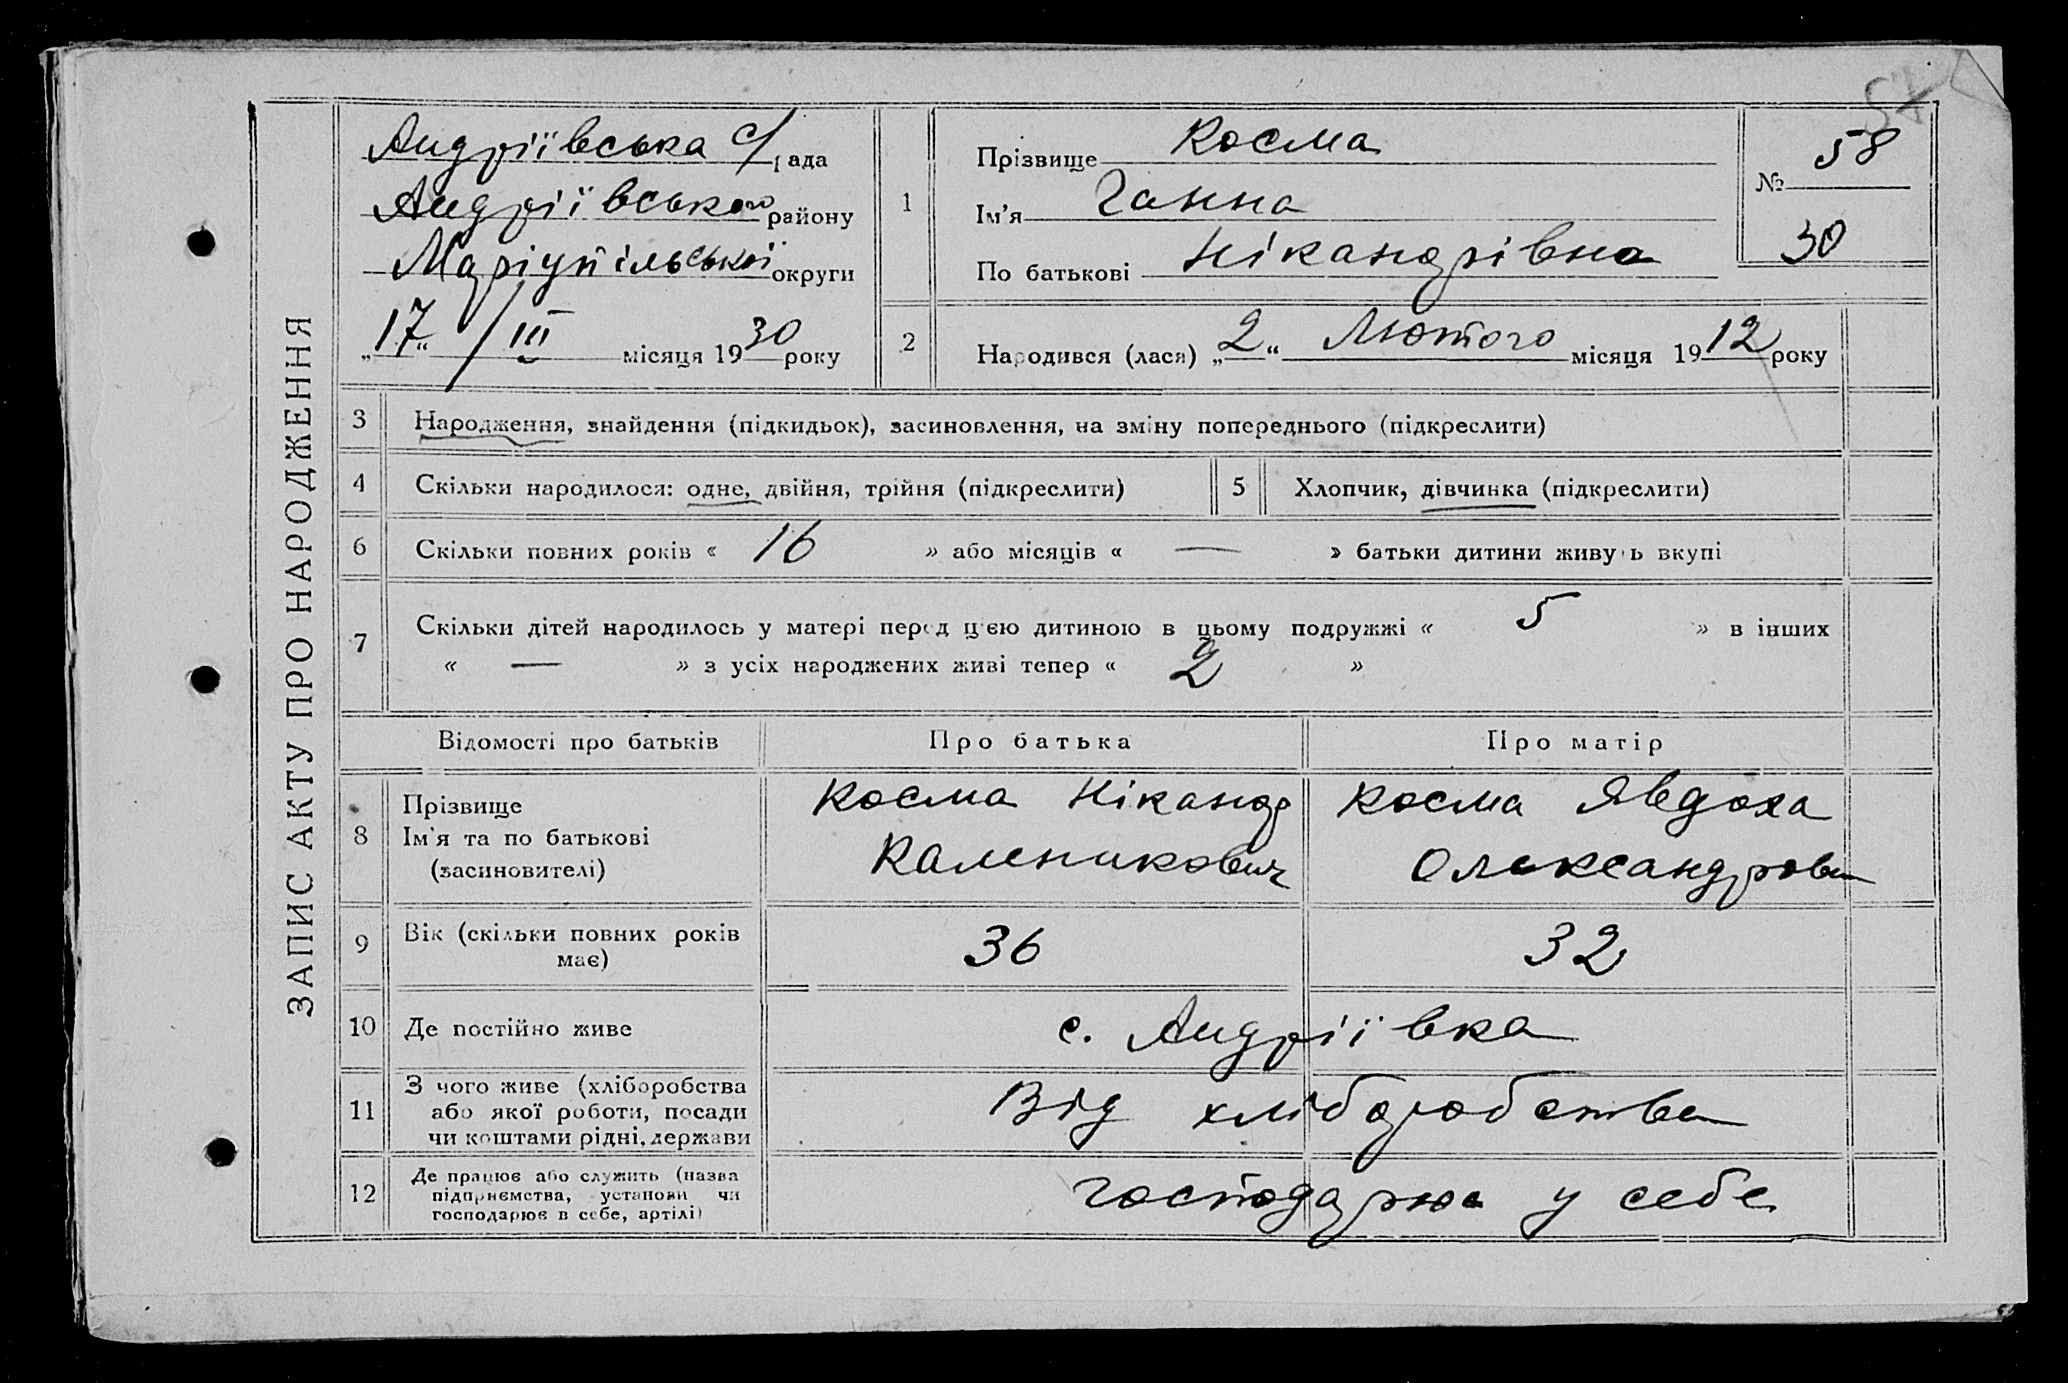 57
ЗАПИС АКТУ ПРО НАРОДЖЕННЯ
Андріївська с/рада
Андріївського району
Маріупільської округи
„17“ / III місяця 1930 року
1
Прізвище Косма
Ім'я Ганна
По батькові Нікандрівна
№ 58
30
2
Народився (лася) „2“ Лютого місяця 1912 року
3 Народження, знайдення (підкидьок), засиновлення, на зміну попереднього (підкреслити)
4 Скільки народилося: одне, двійня, трійня (підкреслити)
5 Хлопчик, дівчинка (підкреслити)
6 Скільки повних років « 16 » або місяців « — » батьки дитини живуть вкупі
7 Скільки дітей народилось у матері перед цією дитиною в цьому подружжі « 5 » в інших
« — » з усіх народжених живі тепер « 2 »
Відомості про батьків Про батька Про матір
8 Прізвище
Ім'я та по батькові
(засиновителі)
Косма Нікандр
Каленикович
Косма Явдоха
Олександровн
9 Вік (скільки повних років
має)
36
32
10 Де постійно живе
с. Андріївка
11 З чого живе (хліборобства
або якої роботи, посади
чи коштами рідні, держави
Від хліборобства
12 Де працює або служить (назва
підприємства, установи чи
господарює в себе, артілі)
господарює у себе